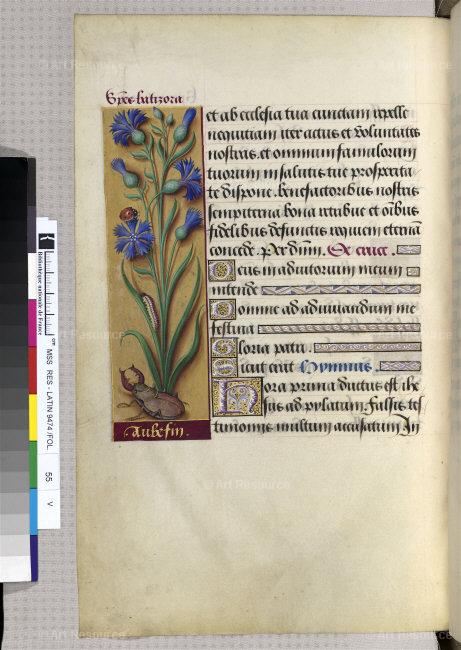 © Art Resource
Spēs batizora
et ab ecclesia tua cunctam repelle
nequitiam iter actus et voluntates
nostras. et omnium famulorum
tuorum in salutis tue prosperita
te dispone. benefactoribus nostris
sempiterna bona retribue et oībus
fidelibus defunctis requiem eternā
concede. Per dūm. De cruce.
Deus in adiutorium meum
intende
Domine ad adiuvandum me
festina
Gloria patri.
Sicut erat Hymnus.
Hora prima ductus est ihe
sus ad pylatum. Falsis tes
timoniis multum accusatum In
Aubefin.
Bibliothèque nationale de France
MSS RES - LATIN 9474 /FOL
55
V
© Art Resource
© Art Resource